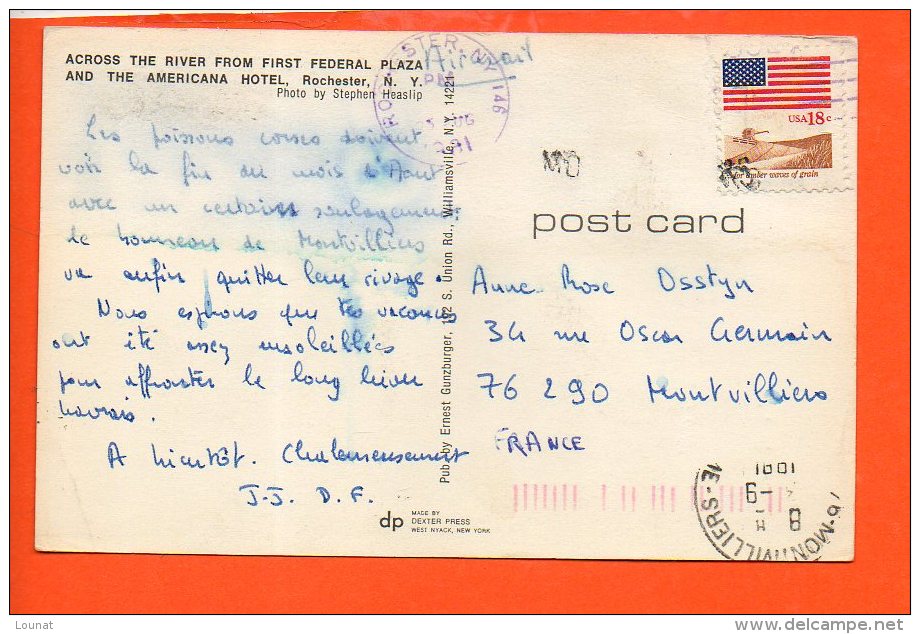 ACROSS THE RIVER FROM FIRST FEDERAL PLAZA
AND THE AMERICANA HOTEL, Rochester, N. Y.
Photo by Stephen Heaslip
Airmail
ROCHESTER, NY 146
PM
1981
USA 18c
for amber waves of grain
post card
Les poissons corses doivent
voir la fin du mois d'Aout
avec un certain soulagement
le de Montvilliers
va enfin quitter leur rivage.
Nous espérons que tes vacances
ont été assez ensoleillées
pour affronter le long hiver
havrais.
A bientôt. Chaleureusement
J-J. D. F.
Pub. by Ernest Gunzburger, 182 S. Union Rd., Williamsville, N.Y. 14221
Anne-Rose Osstyn
34 rue Oscar Germain
76 290 Montvilliers
FRANCE
dp MADE BY
DEXTER PRESS
WEST NYACK, NEW YORK
76-MONTIVILLIERS
8 H
-9
1981
Lounat
www.delcampe.net